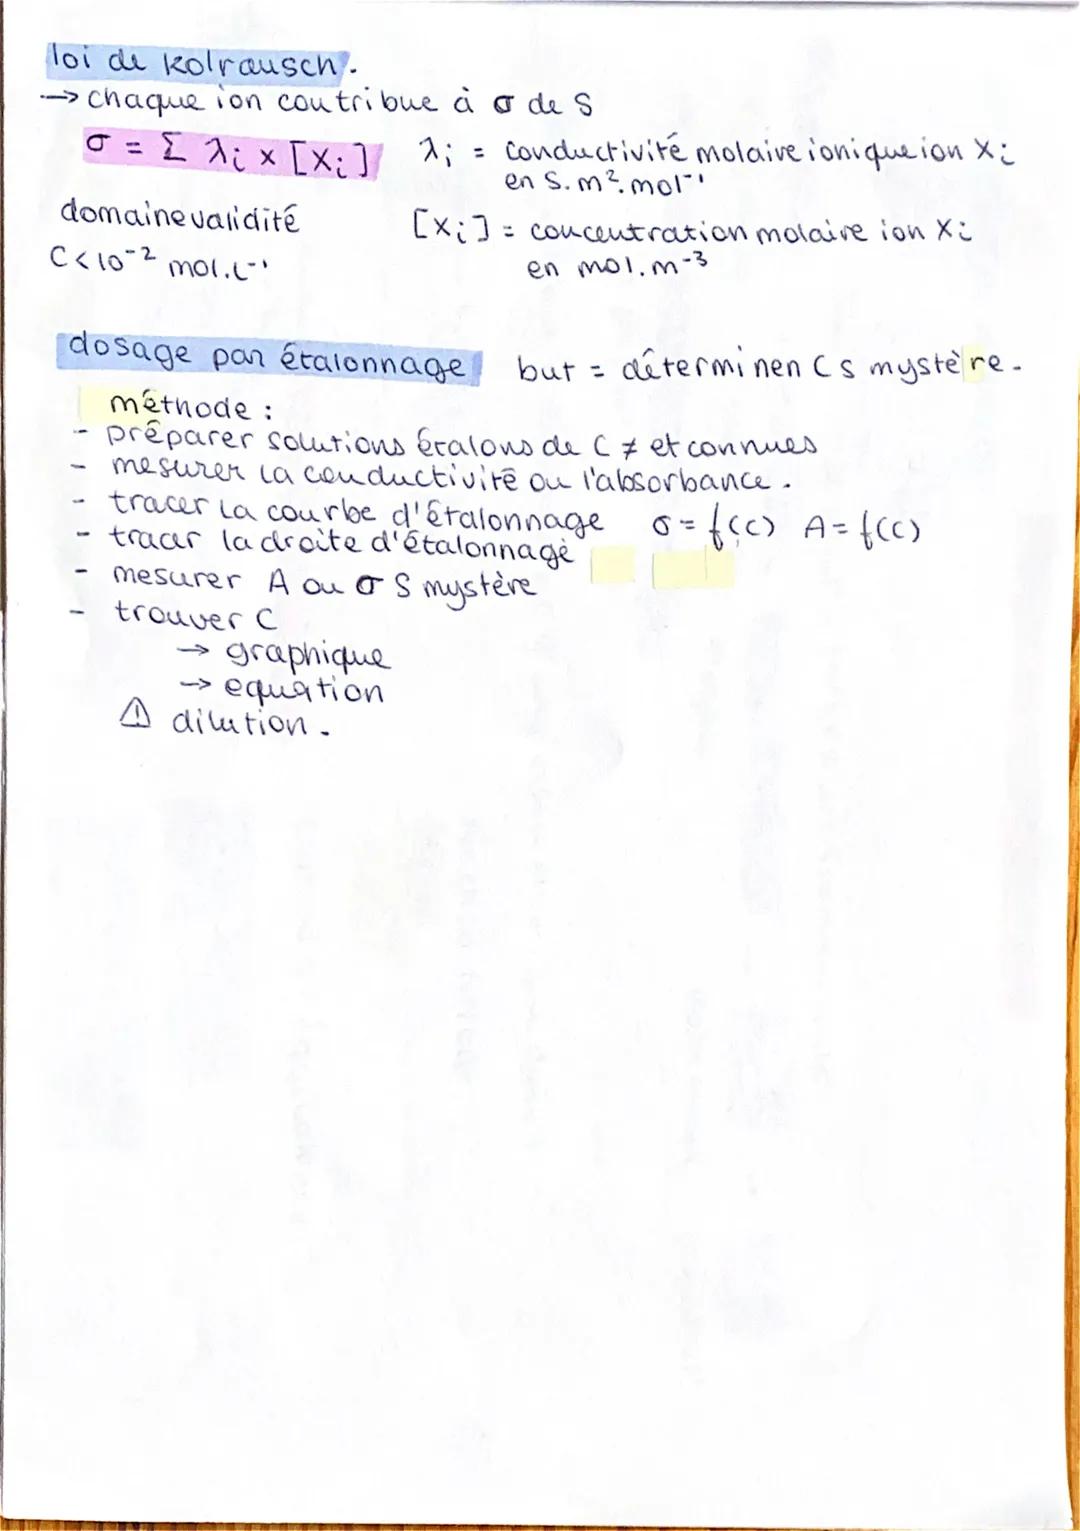 loi de Kolrausch.
→ chaque ion contribue à σ de S
σ = Σ λi × [Xi] λi = conductivité molaire ionique ion Xi
en S.m².mol⁻¹
domaine validité [Xi] = concentration molaire ion Xi
C < 10⁻² mol.L⁻¹ en mol.m⁻³
dosage par étalonnage but = déterminer C S mystère.
méthode :
- préparer solutions étalons de C ≠ et connues
- mesurer la conductivité ou l'absorbance.
- tracer la courbe d'étalonnage σ = f(c) A = f(c)
- tracer la droite d'étalonnage
- mesurer A ou σ S mystère
- trouver C
→ graphique
→ equation
⚠ dilution.